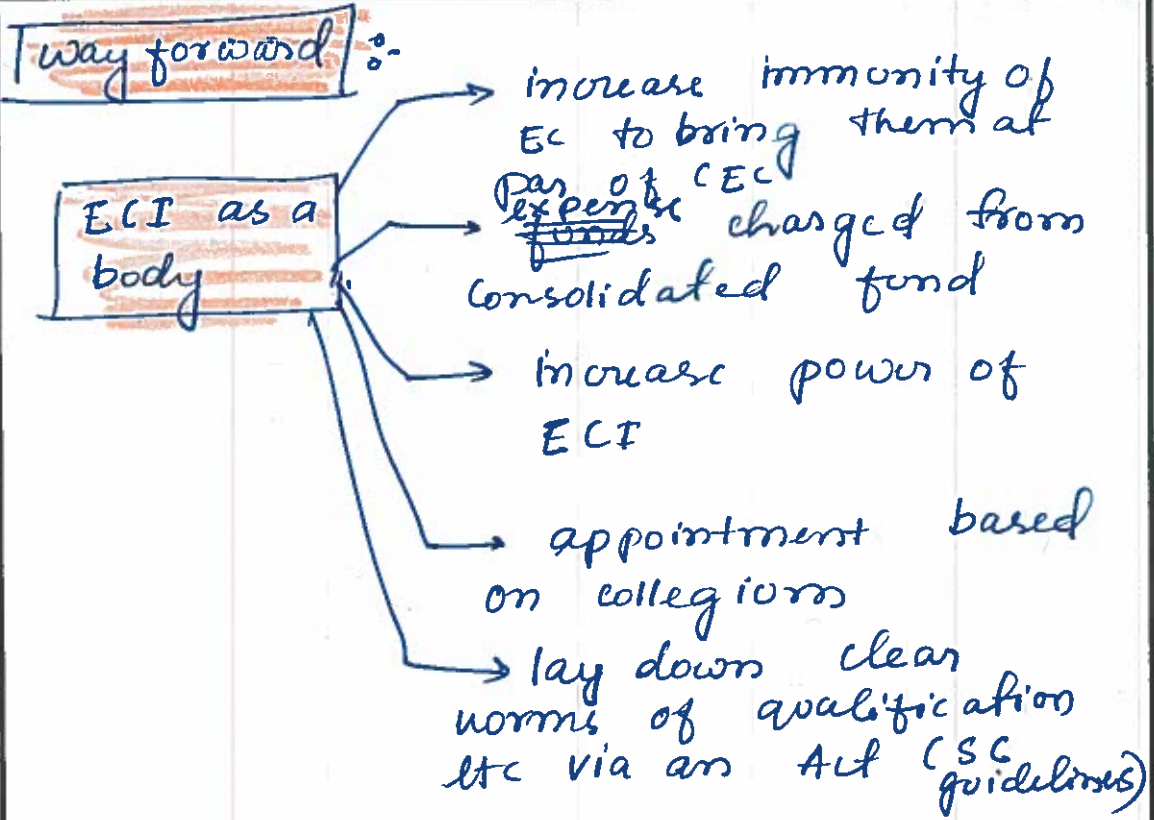 way forward :-
increase immunity of
EC to bring them at
par of CEC
ECI as a
body
expense charged from
funds
Consolidated fund
increase power of
ECI
appointment based
on collegium
lay down clear
norms of qualification
etc via an Act (SC
guidelines)